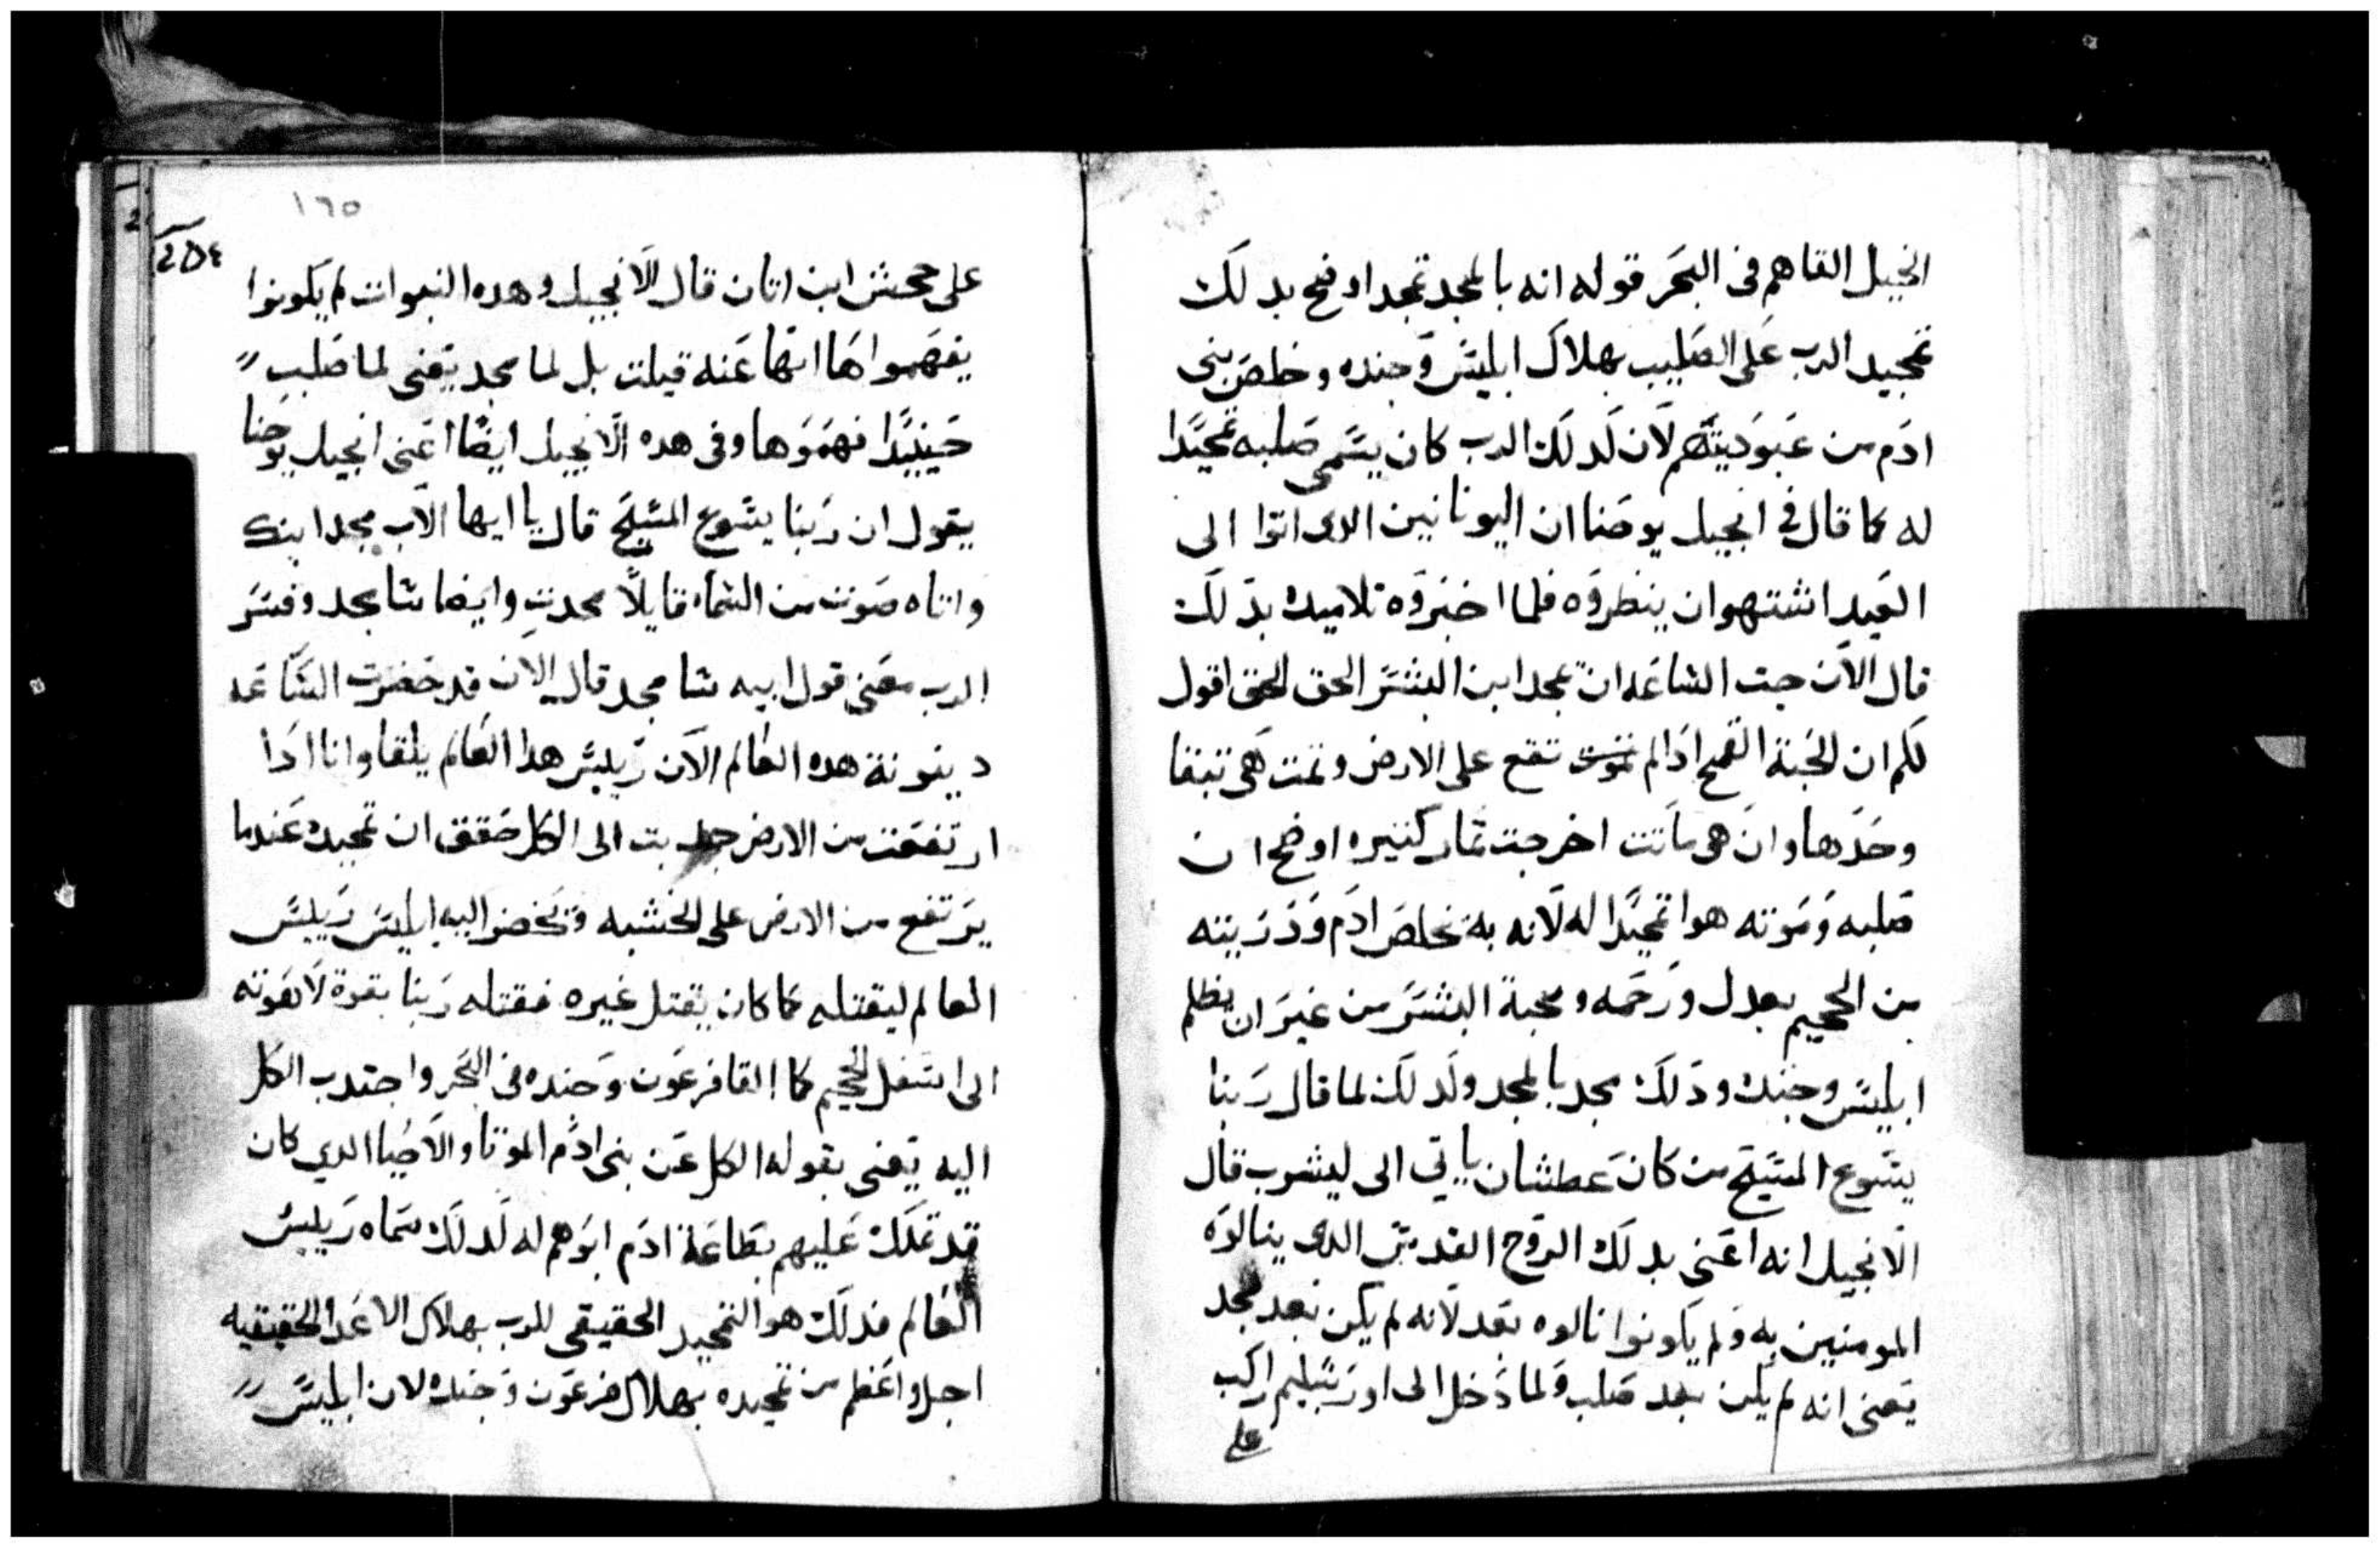 الخيل القاهم فى البحر قوله انه بالمجد تمجد اوضح بدلك
تمجيد الرب على الصليب بهلاك ابليس وجنده وخلص بنى
ادم من عبوديتهم لان لدلك الرب كان يسمى صلبه تمجيدا
له كما قال فى انجيل يوحنا ان اليونانين الدى اتوا الى
العيد اشتهوا ان ينظروه فلما اخبروه تلاميده بدلك
قال الان جت الساعه ان يمجد ابن البشر الحق الحق اقول
لكم ان الحبة القمح ادا لم تموت تقع على الارض وتمت هى تبقا
وحدها وان هى ماتت اخرجت تمار كتيره اوضح ان
صلبه وموته هوا تمجيدا له لانه به خلص ادم ودريته
من الجحيم بعدل ورحمه ومحبة البشر من غير ان يظلم
ابليس وجنده ودلك مجد بالمجد ولدلك لما قال ربنا
يسوع المسيح من كان عطشان ياتي الى ليشرب قال
الانجيل انه اعنى بدلك الروح القدس الدى ينالوه
المومنين به ولم يكونوا نالوه بعد لانه لم يكن بعد مجد
يعنى انه لم يكن بعد صلب ولما دخل الى اورشليم راكب
على
١٦٥
على جحش ابن اتان قال الانجيل وهده النبوات لم يكونوا
يفهموا ها انها عنه قيلت بل لما مجد يعنى لما صلب
حينيدا فهموها وفى هده الانجيل ايضا اعنى انجيل يوحنا
يقول ان ربنا يسوع المسيح قال يا ايها الاب مجد ابنك
واتاه صوت من السماء قايلا مجدت وايضا سامجد وفسر
الرب معنى قول ابيه سا مجد قال الان قد حضرت الساعه
دينونة هده العالم الان رييس هدا العالم يلقا وانا ادا
ارتفعت من الارض جدبت الى الكل حقق ان تمجيده عندما
يرتفع من الارض على الخشبه ويحضر اليه ابليس رييس
العالم ليقتله كما كان يقتل غيره فقتله ربنا بقوة لاهوته
الى اسفل الجحيم كما القا فرعون وجنده فى البحر واجتدب الكل
اليه يعنى بقوله الكل عن بنى ادم الموتا والاحيا الدي كان
قد تملك عليهم بطاعة ادم ابوهم له لدلك سماه رييس
العالم فدلك هو التمجيد الحقيقى للرب بهلاك الاعدا الحقيقيه
اجل واعظم من تمجيده بهلاك فرعون وجنده لان ابليس